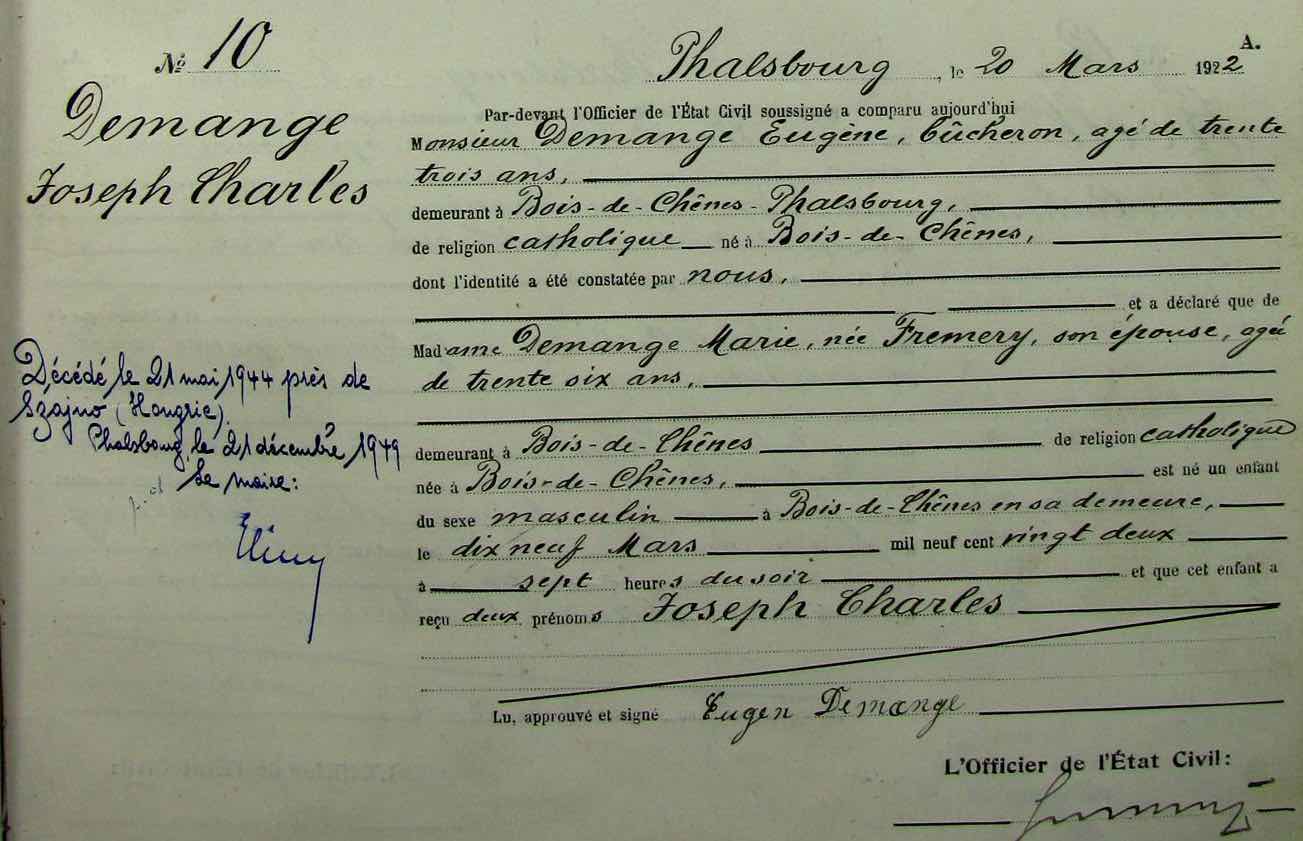 № 10
Demange
Joseph Charles
A.
Phalsbourg, le 20 Mars 1922
Par-devant l'Officier de l'État Civil soussigné a comparu aujourd'hui
Monsieur Demange Eugène, bûcheron, agé de trente
trois ans,
demeurant à Bois-de-Chênes-Phalsbourg,
de religion catholique né à Bois-de-Chênes,
dont l'identité a été constatée par nous,
et a déclaré que de
Madame Demange Marie, née Fremery, son épouse, agée
de trente six ans,
demeurant à Bois-de-Chênes de religion catholique
née à Bois-de-Chênes, est né un enfant
du sexe masculin à Bois-de-Chênes en sa demeure,
le dix neuf Mars mil neuf cent vingt deux
à sept heures du soir et que cet enfant a
reçu deux prénoms Joseph Charles
Lu, approuvé et signé Eugen Demange
L'Officier de l'État Civil:
Décédé le 21 mai 1944 près de
Szajno (Hongrie).
Phalsbourg, le 21 décembre 1949
Le maire: